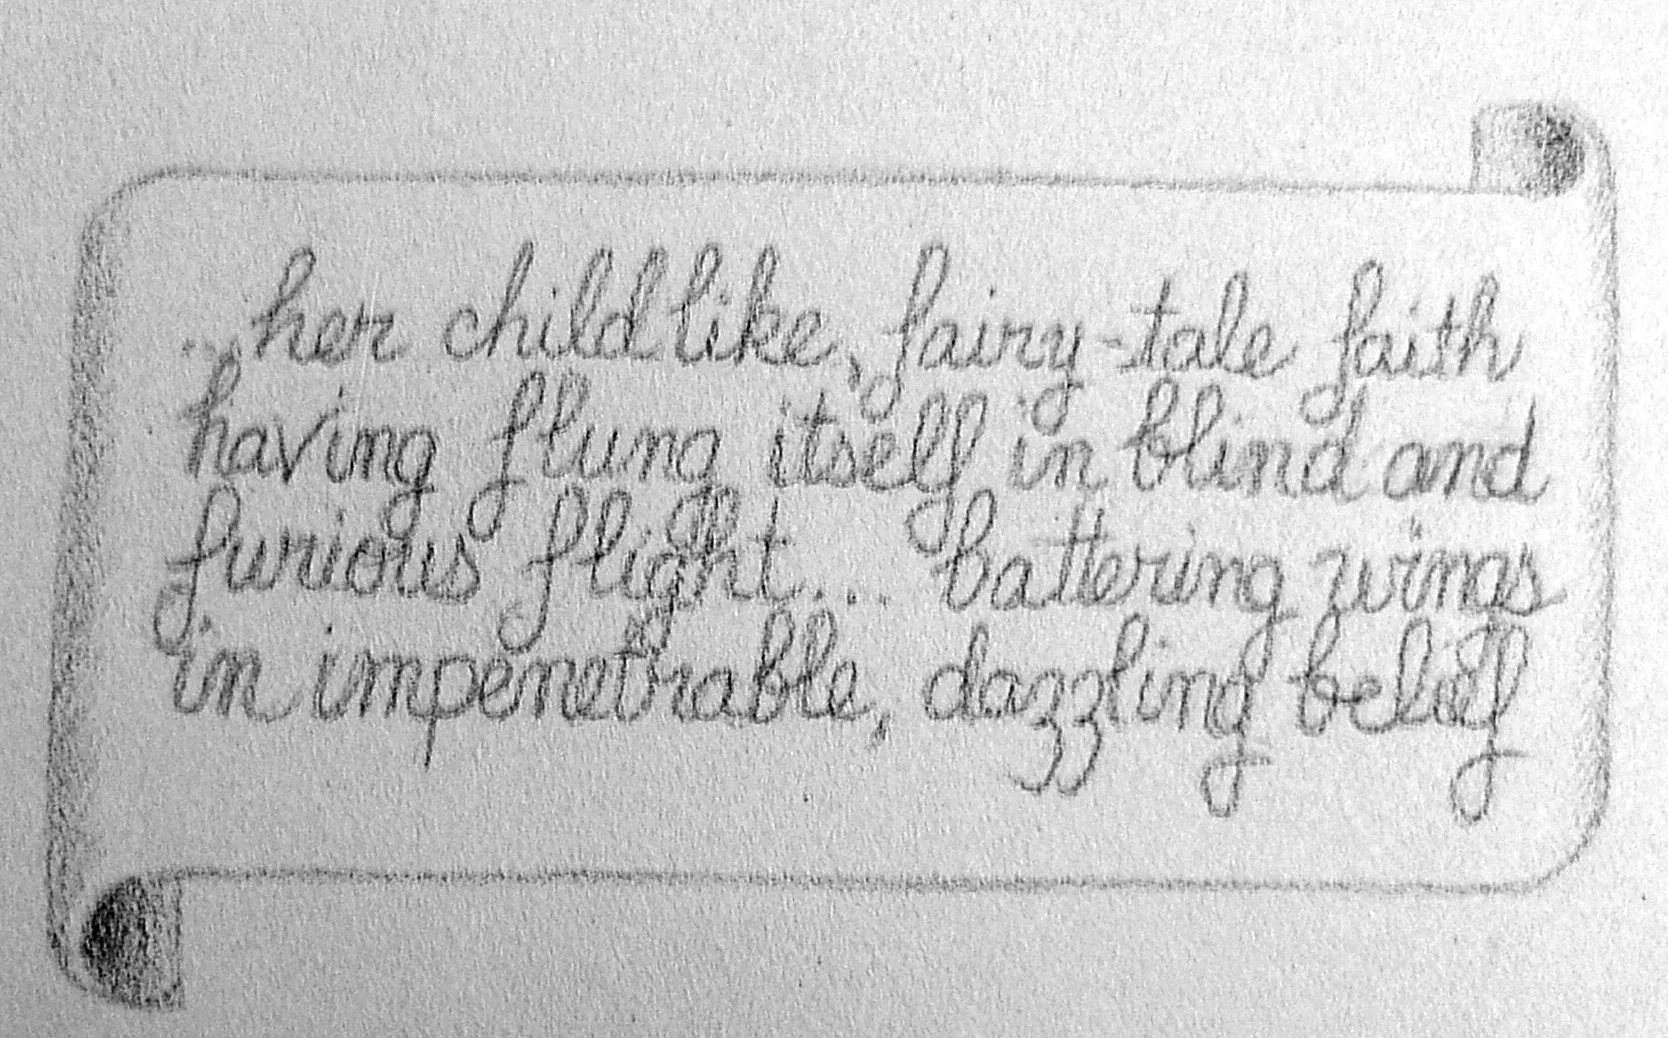 ...her childlike, fairy-tale faith
having flung itself in blind and
furious flight... battering wings
in impenetrable, dazzling belief